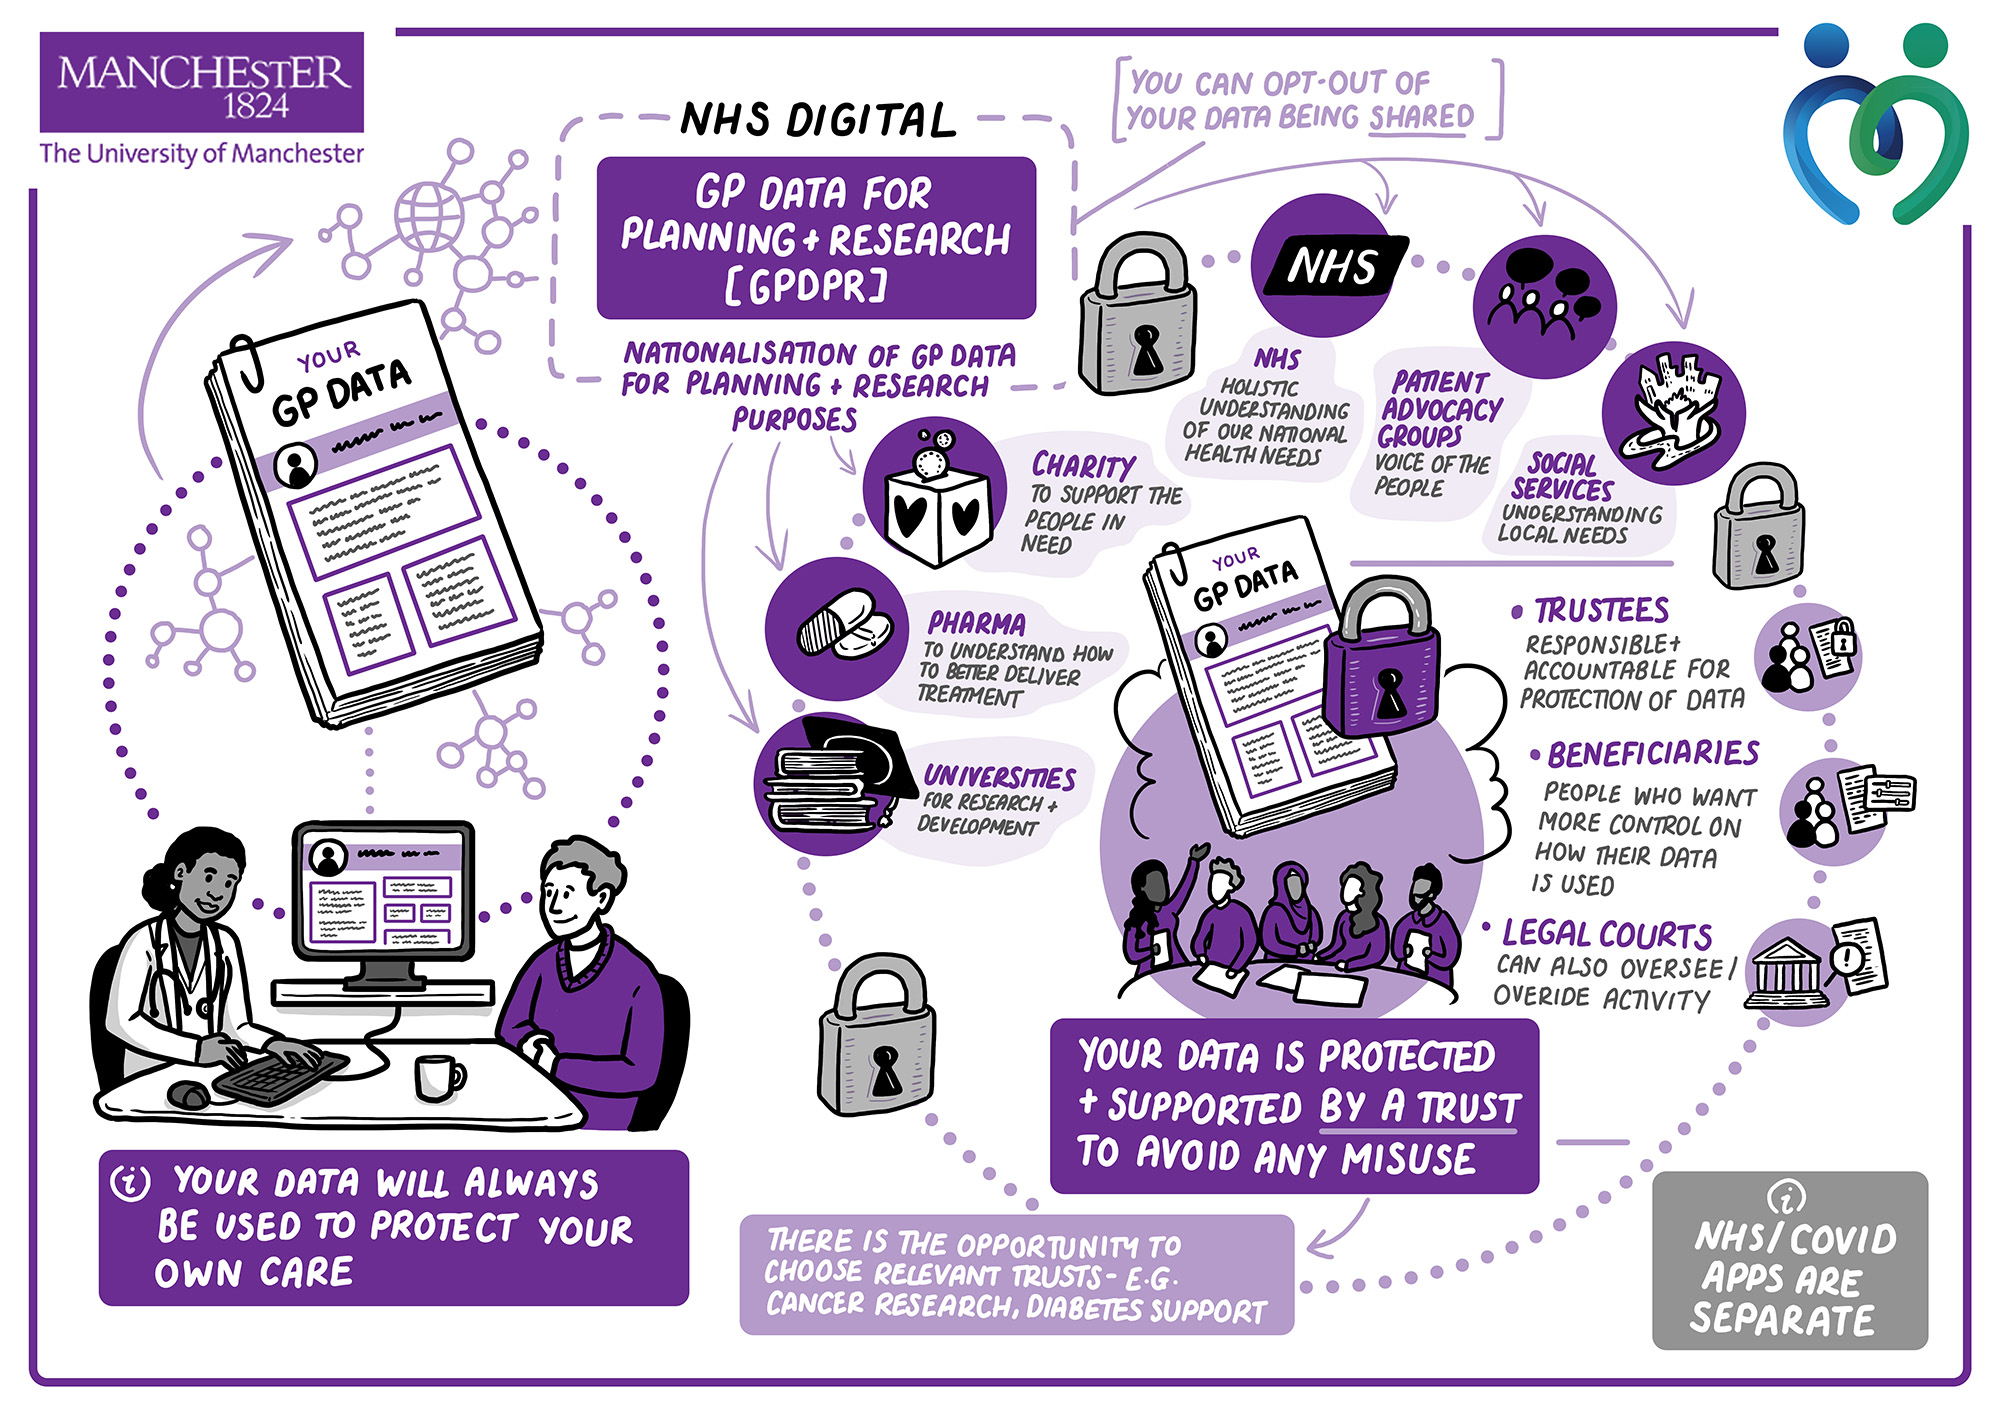 MANCHESTER
1824
The University of Manchester
NHS DIGITAL
GP DATA FOR
PLANNING + RESEARCH
[GPDPR]
NATIONALISATION OF GP DATA
FOR PLANNING + RESEARCH
PURPOSES
[YOU CAN OPT-OUT OF
YOUR DATA BEING SHARED]
YOUR
GP DATA
NHS
NHS
HOLISTIC
UNDERSTANDING
OF OUR NATIONAL
HEALTH NEEDS
PATIENT
ADVOCACY
GROUPS
VOICE OF THE
PEOPLE
SOCIAL
SERVICES
UNDERSTANDING
LOCAL NEEDS
CHARITY
TO SUPPORT THE
PEOPLE IN
NEED
PHARMA
TO UNDERSTAND HOW
TO BETTER DELIVER
TREATMENT
UNIVERSITIES
FOR RESEARCH +
DEVELOPMENT
YOUR
GP DATA
• TRUSTEES
RESPONSIBLE +
ACCOUNTABLE FOR
PROTECTION OF DATA
• BENEFICIARIES
PEOPLE WHO WANT
MORE CONTROL ON
HOW THEIR DATA
IS USED
• LEGAL COURTS
CAN ALSO OVERSEE/
OVERIDE ACTIVITY
!
YOUR DATA IS PROTECTED
+ SUPPORTED BY A TRUST
TO AVOID ANY MISUSE
i YOUR DATA WILL ALWAYS
BE USED TO PROTECT YOUR
OWN CARE
THERE IS THE OPPORTUNITY TO
CHOOSE RELEVANT TRUSTS - E.G.
CANCER RESEARCH, DIABETES SUPPORT
i
NHS/COVID
APPS ARE
SEPARATE